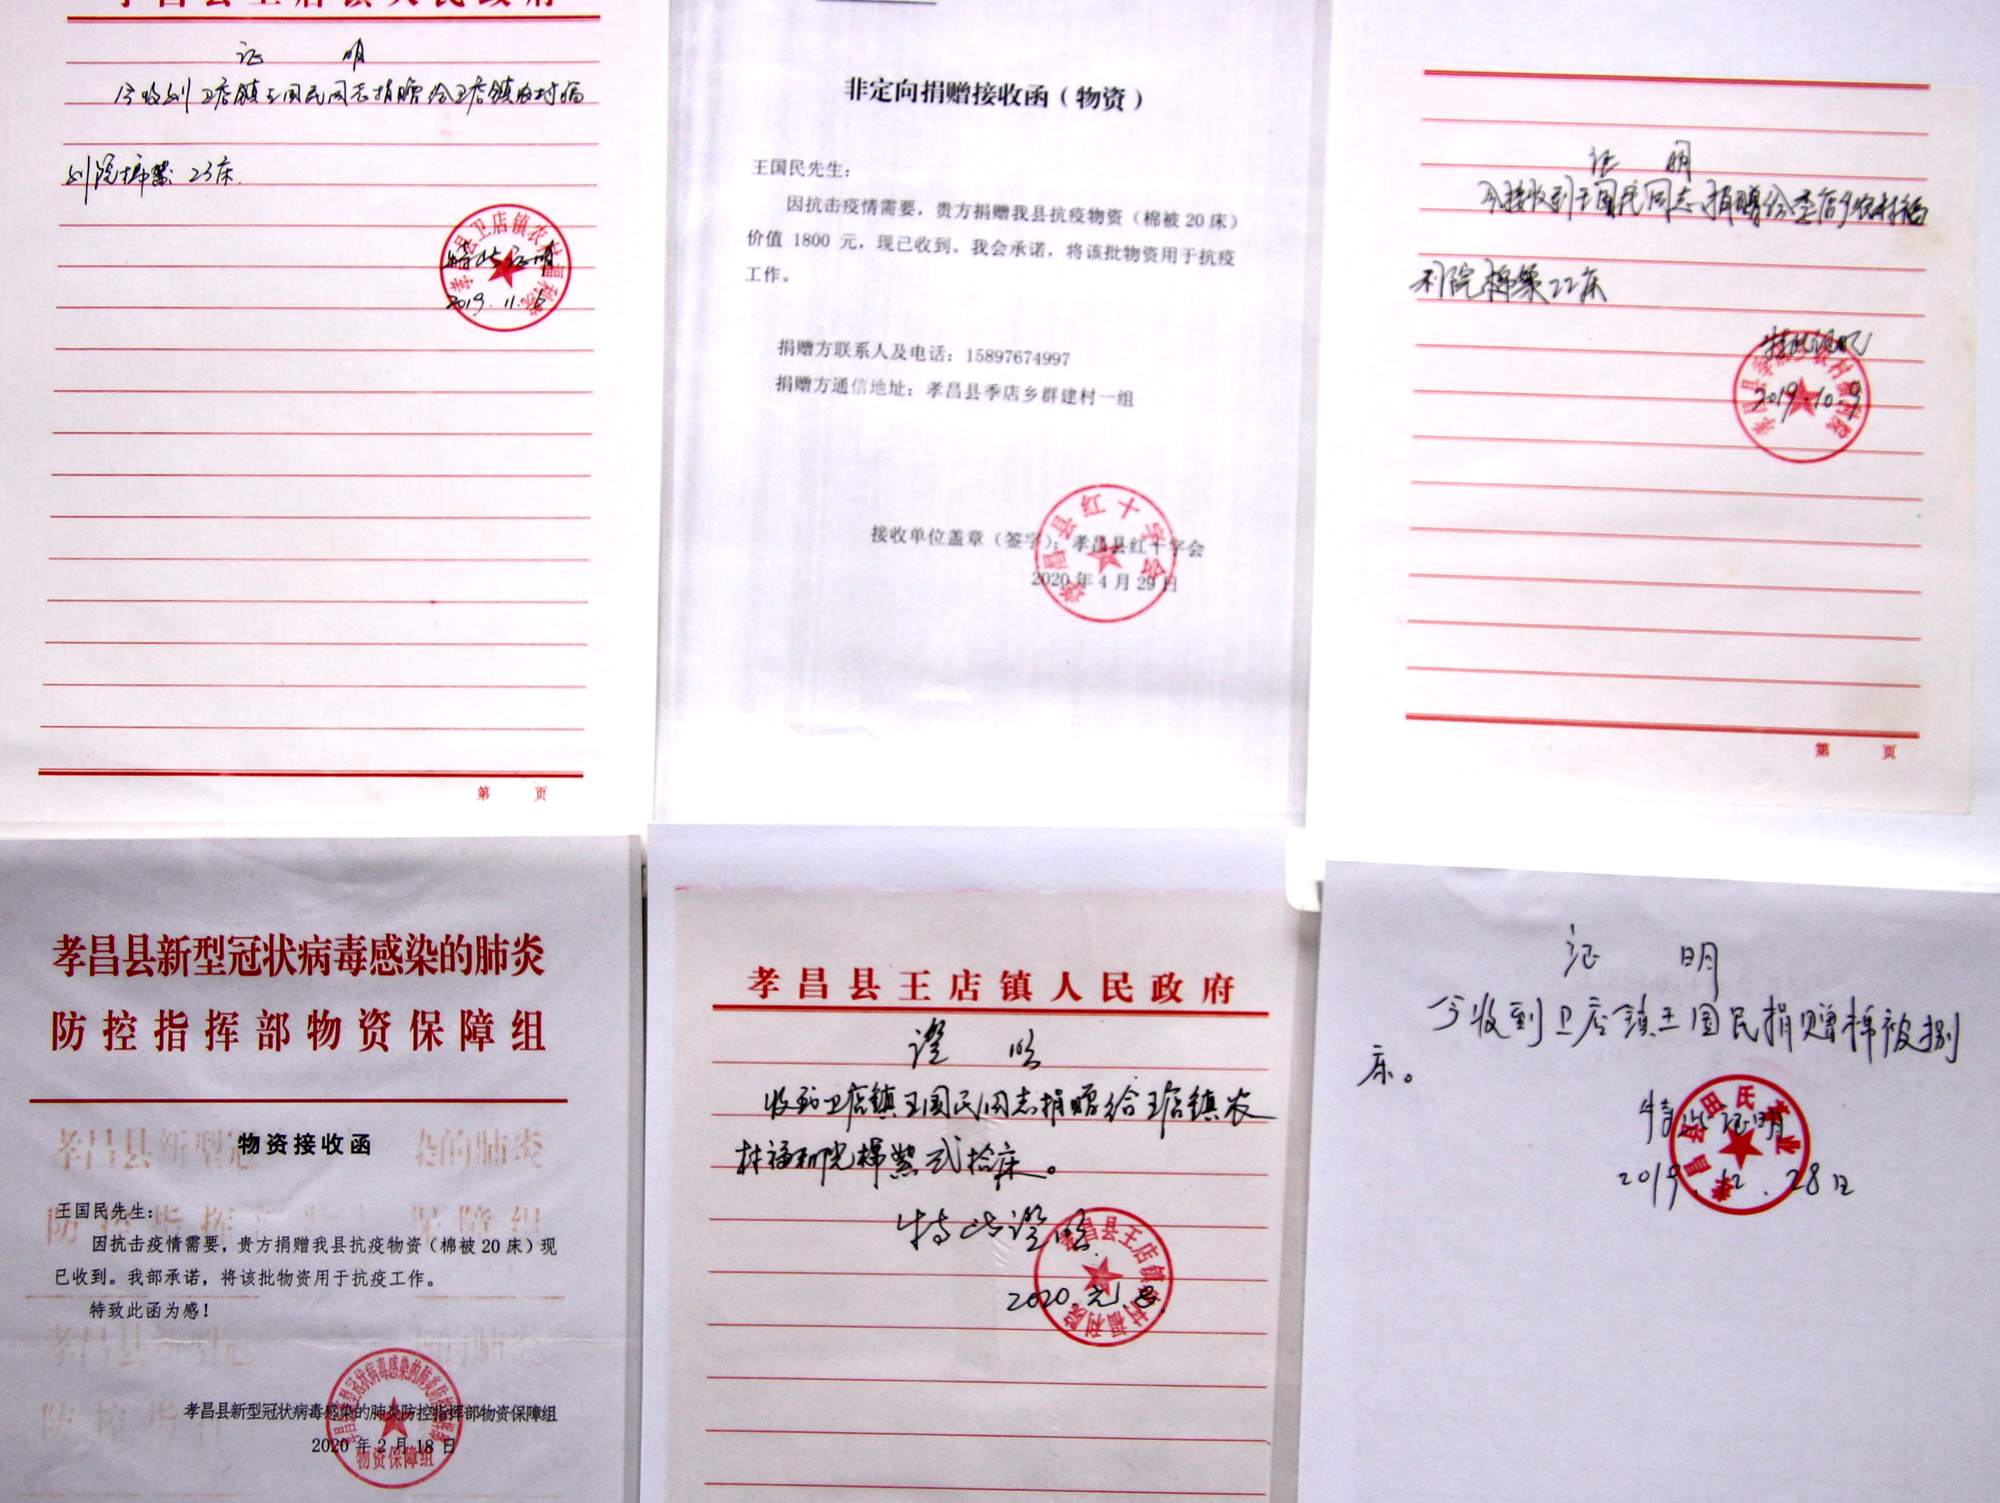 孝昌县王店镇人民政府
证 明
今收到卫店镇王国民同志捐赠给卫店镇农村福
利院棉絮 23床.
特此证明
2019.11.6
第 页
非定向捐赠接收函（物资）
王国民先生：
因抗击疫情需要，贵方捐赠我县抗疫物资（棉被 20 床）
价值 1800 元，现已收到。我会承诺，将该批物资用于抗疫
工作。
捐赠方联系人及电话：15897674997
捐赠方通信地址：孝昌县季店乡群建村一组
接收单位盖章（签字）：孝昌县红十字会
2020 年 4 月 29 日
孝昌县红十字会
证 明
今接收到王国民同志捐赠给季店乡农村福
利院棉絮22床
特此证明
2019.10.9
第 页
孝昌县新型冠状病毒感染的肺炎
防控指挥部物资保障组
物资接收函
王国民先生：
因抗击疫情需要，贵方捐赠我县抗疫物资（棉被 20 床）现
已收到。我部承诺，将该批物资用于抗疫工作。
特致此函为感！
孝昌县新型冠状病毒感染的肺炎防控指挥部物资保障组
2020 年 2 月 18 日
物资保障组
孝昌县王店镇人民政府
證 明
收到卫店镇王国民同志捐赠给王店镇农
村福利院棉絮弍拾床。
特此證明.
2020.元.8.
孝昌县王店镇农村福利院
证 明
今收到卫店镇王国民捐赠棉被捌
床。
特此证明
2019.12.28日